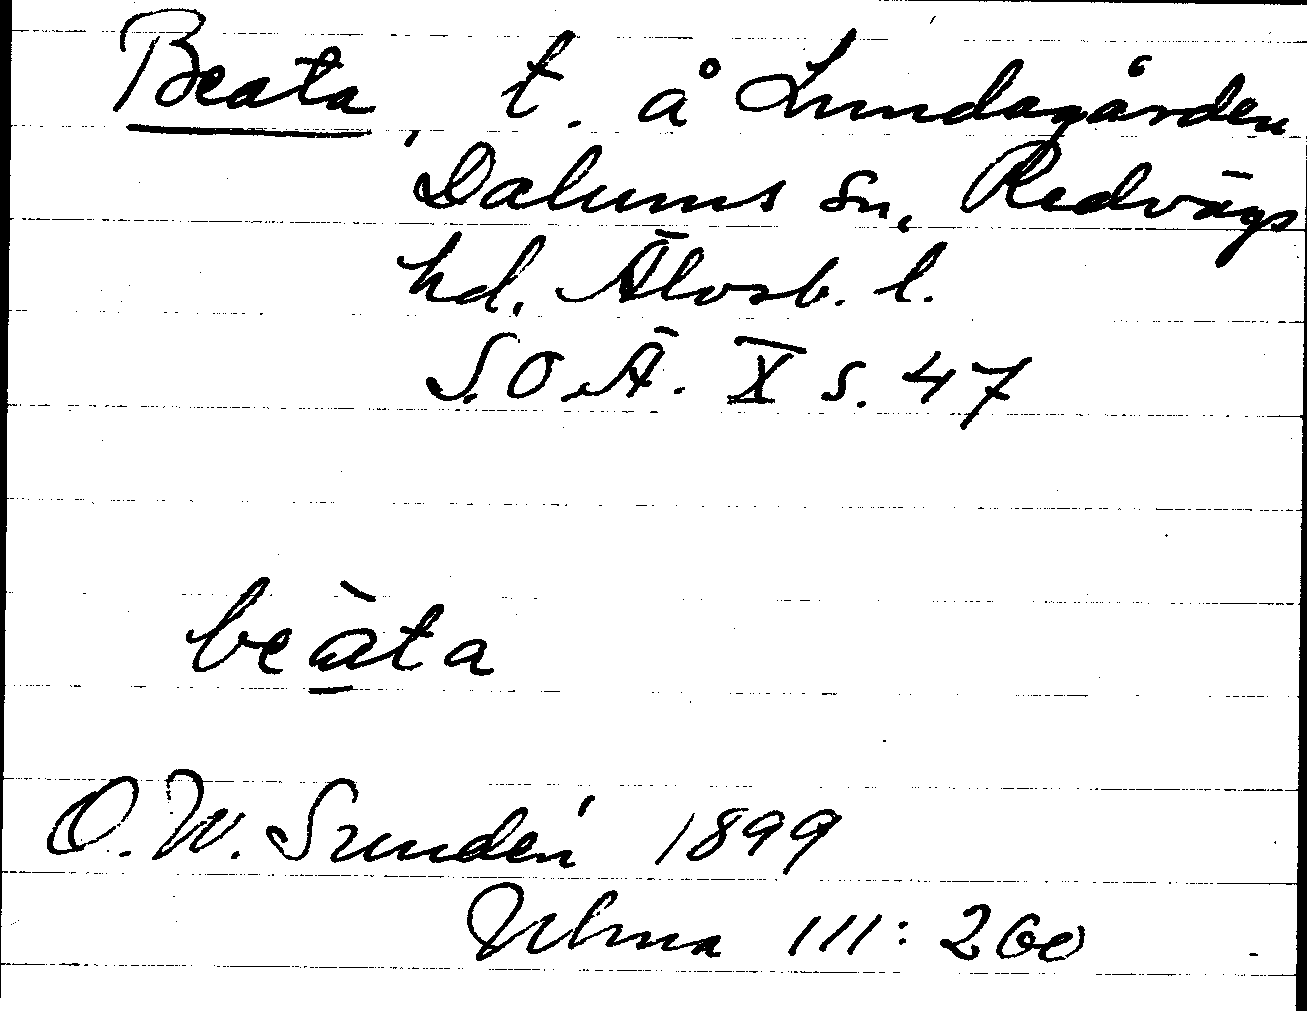 Beata, t. å Lundagården
Dalums sn, Redvägs
hd. Älvsb. l.
S.O.Ä. X s. 47
beàta
O. W. Sundén 1899
Ulma 111: 260